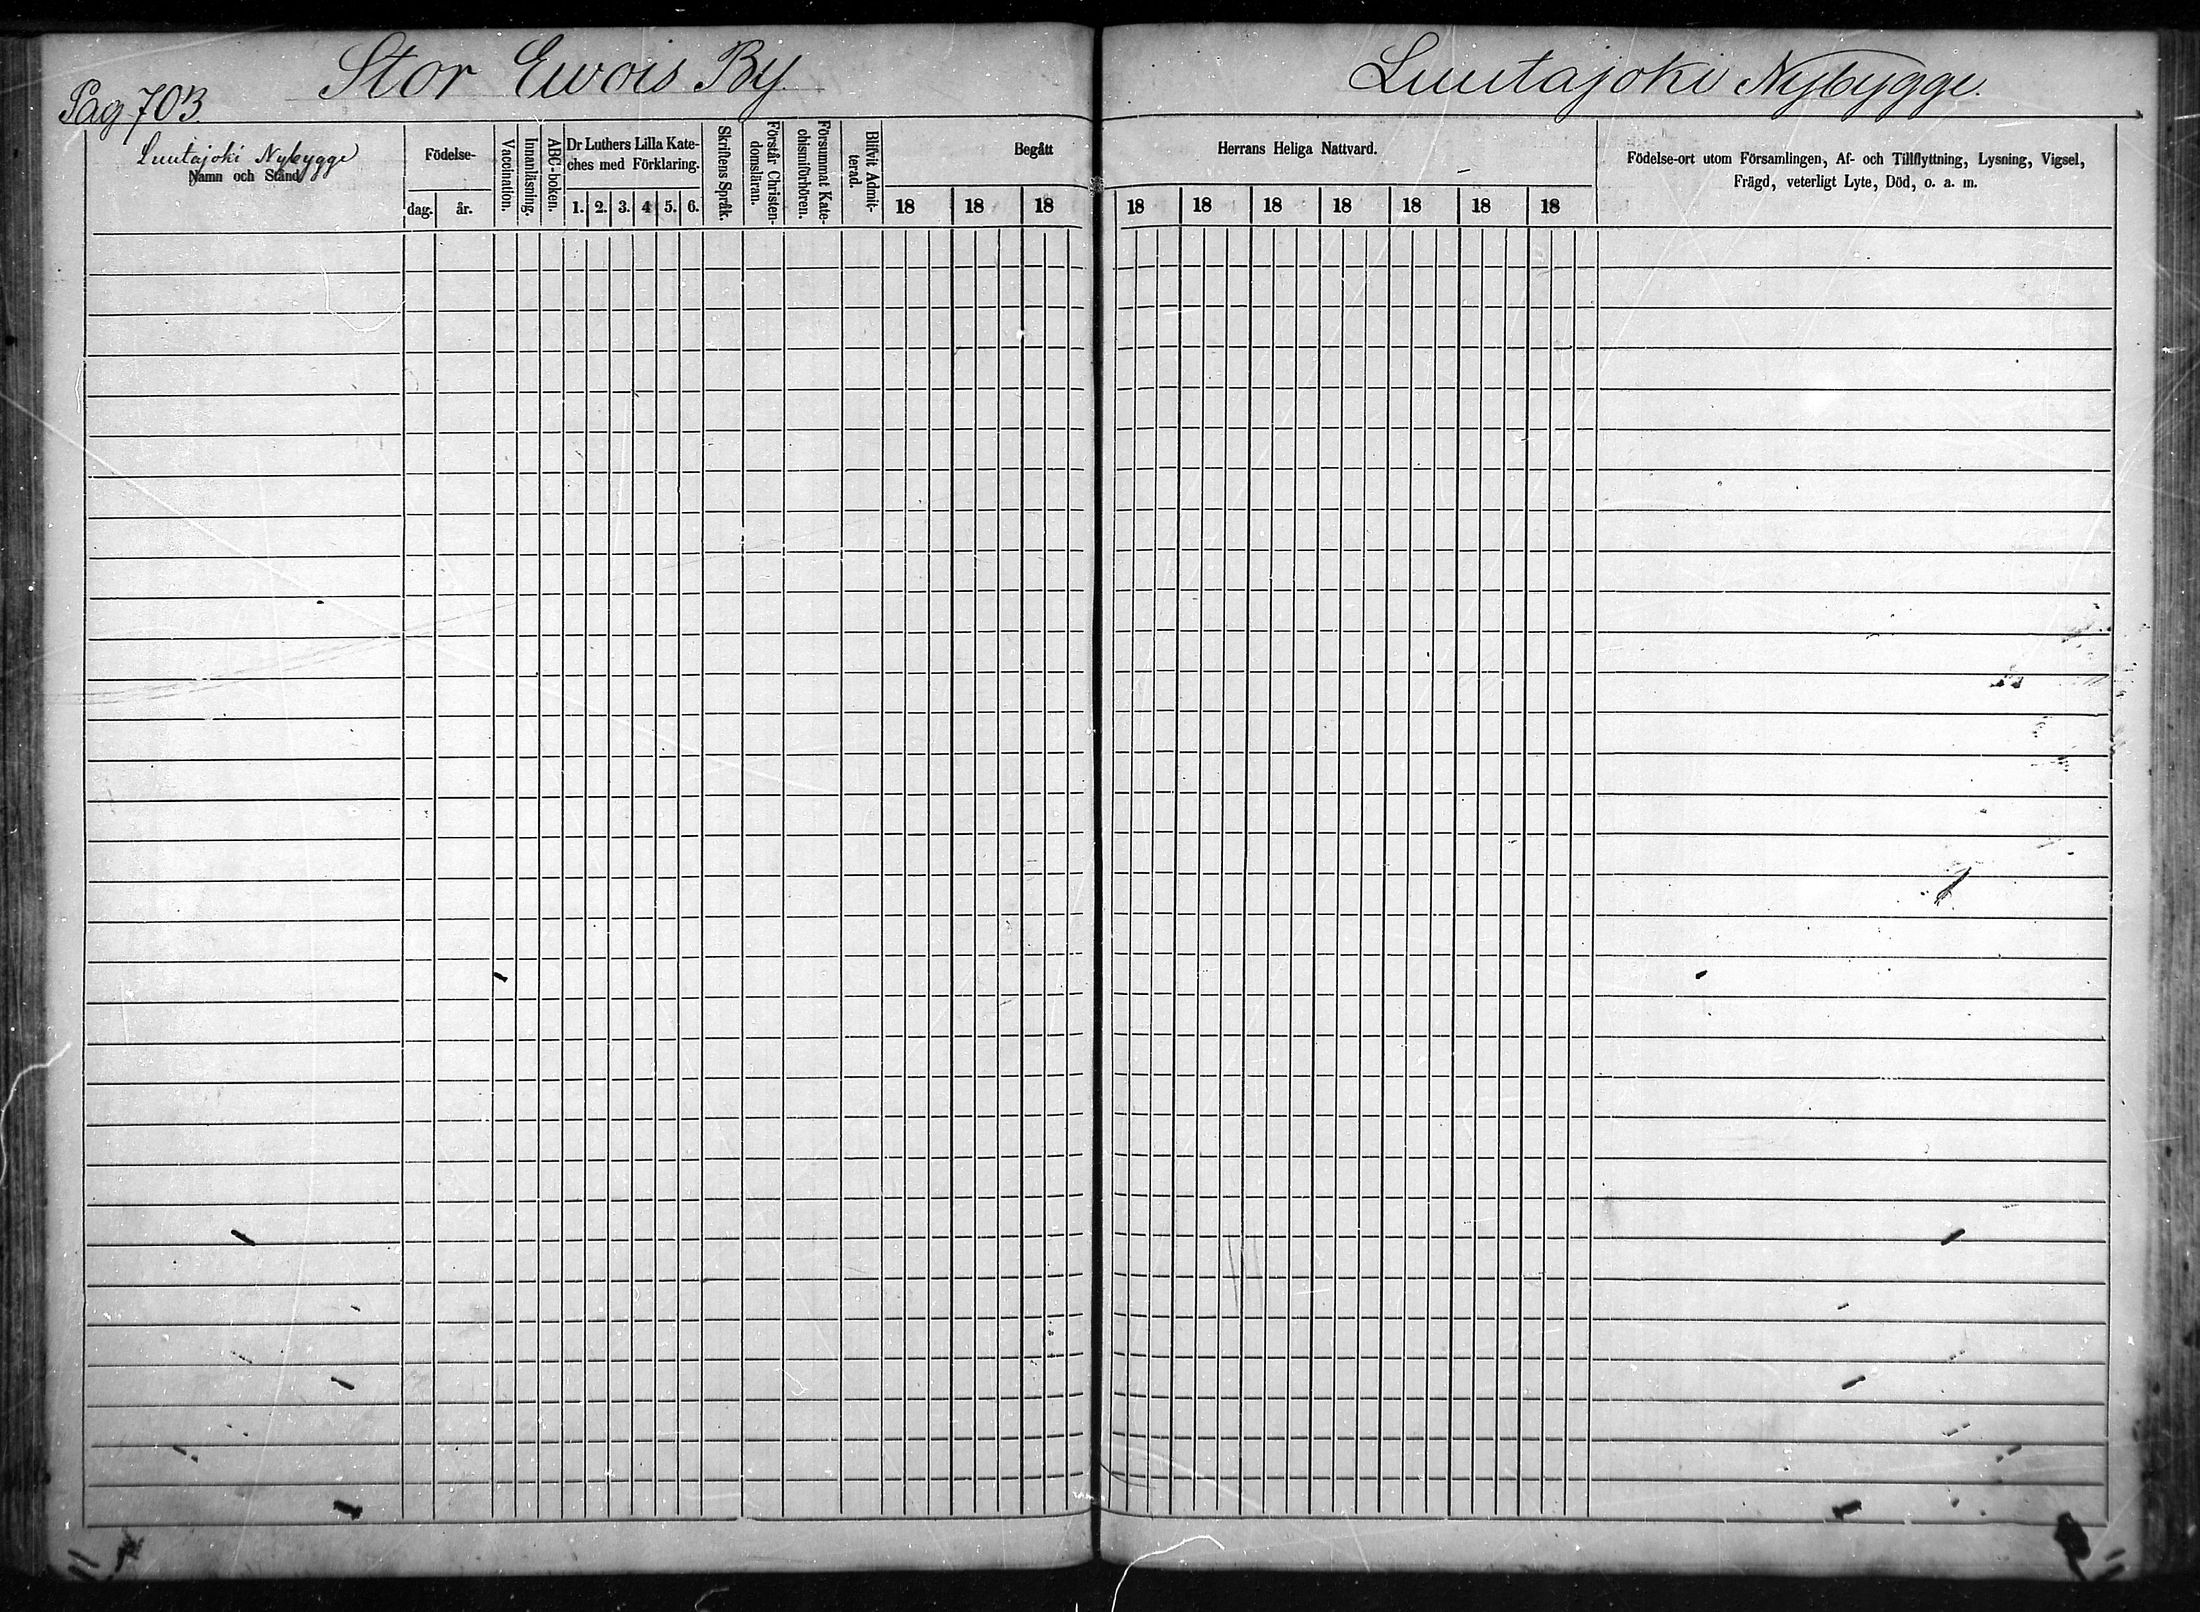 Stor Ewois By.
Luutajoki Nybygge.
Pag 703.
Luutajoki Nybygge
Namn och Stånd.
Födelse-
dag. år.
Vaccination.
Innanläsning.
ABC-boken.
Dr Luthers Lilla Kate-
ches med Förklaring.
1. 2. 3. 4 5. 6.
Skriftens Språk.
Förstår Christen-
domsläran.
Försummat Kate-
chismiförhören.
Blifvit Admit-
terad.
Begått Herrans Heliga Nattvard.
18 18 18 18 18 18 18 18 18 18
Födelse-ort utom Församlingen, Af- och Tillflyttning, Lysning, Vigsel,
Frägd, veterligt Lyte, Död, o. a. m.